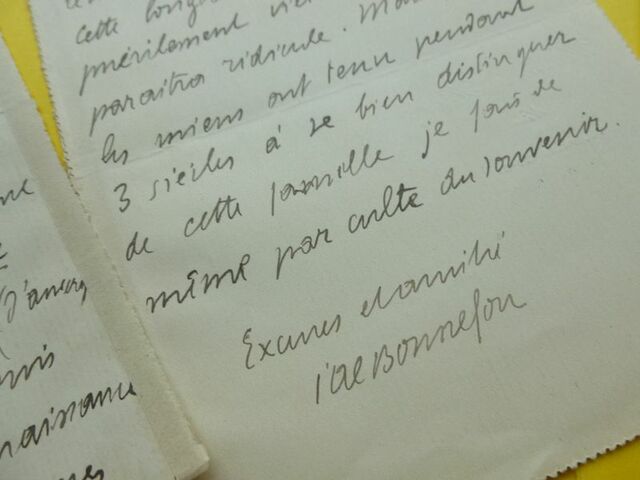 cette longue
puérilement vie
paraitra ridicule. Mais
les miens ont tenu pendant
3 siècles à se bien distinguer
de cette famille je fais de
même par culte du souvenir.
Excuses et amitié
de Bonnefon
d'ancêy
naissance